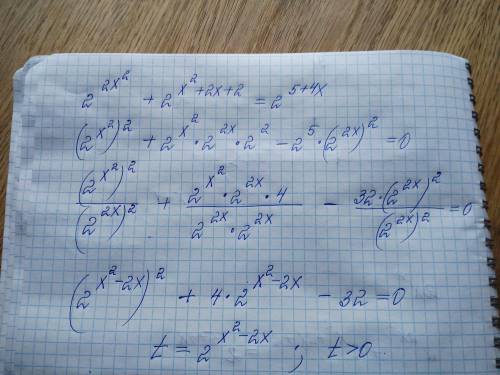 2^{2x^2} + 2^{x^2+2x+2} = 2^{5+4x}
(2^{x^2})^2 + 2^{x^2} · 2^{2x} · 2^2 - 2^5 · (2^{2x})^2 = 0
\frac{(2^{x^2})^2}{(2^{2x})^2} + \frac{2^{x^2} · 2^{2x} · 4}{2^{2x} · 2^{2x}} - \frac{32 · (2^{2x})^2}{(2^{2x})^2} = 0
(2^{x^2-2x})^2 + 4 · 2^{x^2-2x} - 32 = 0
t = 2^{x^2-2x} ; t > 0